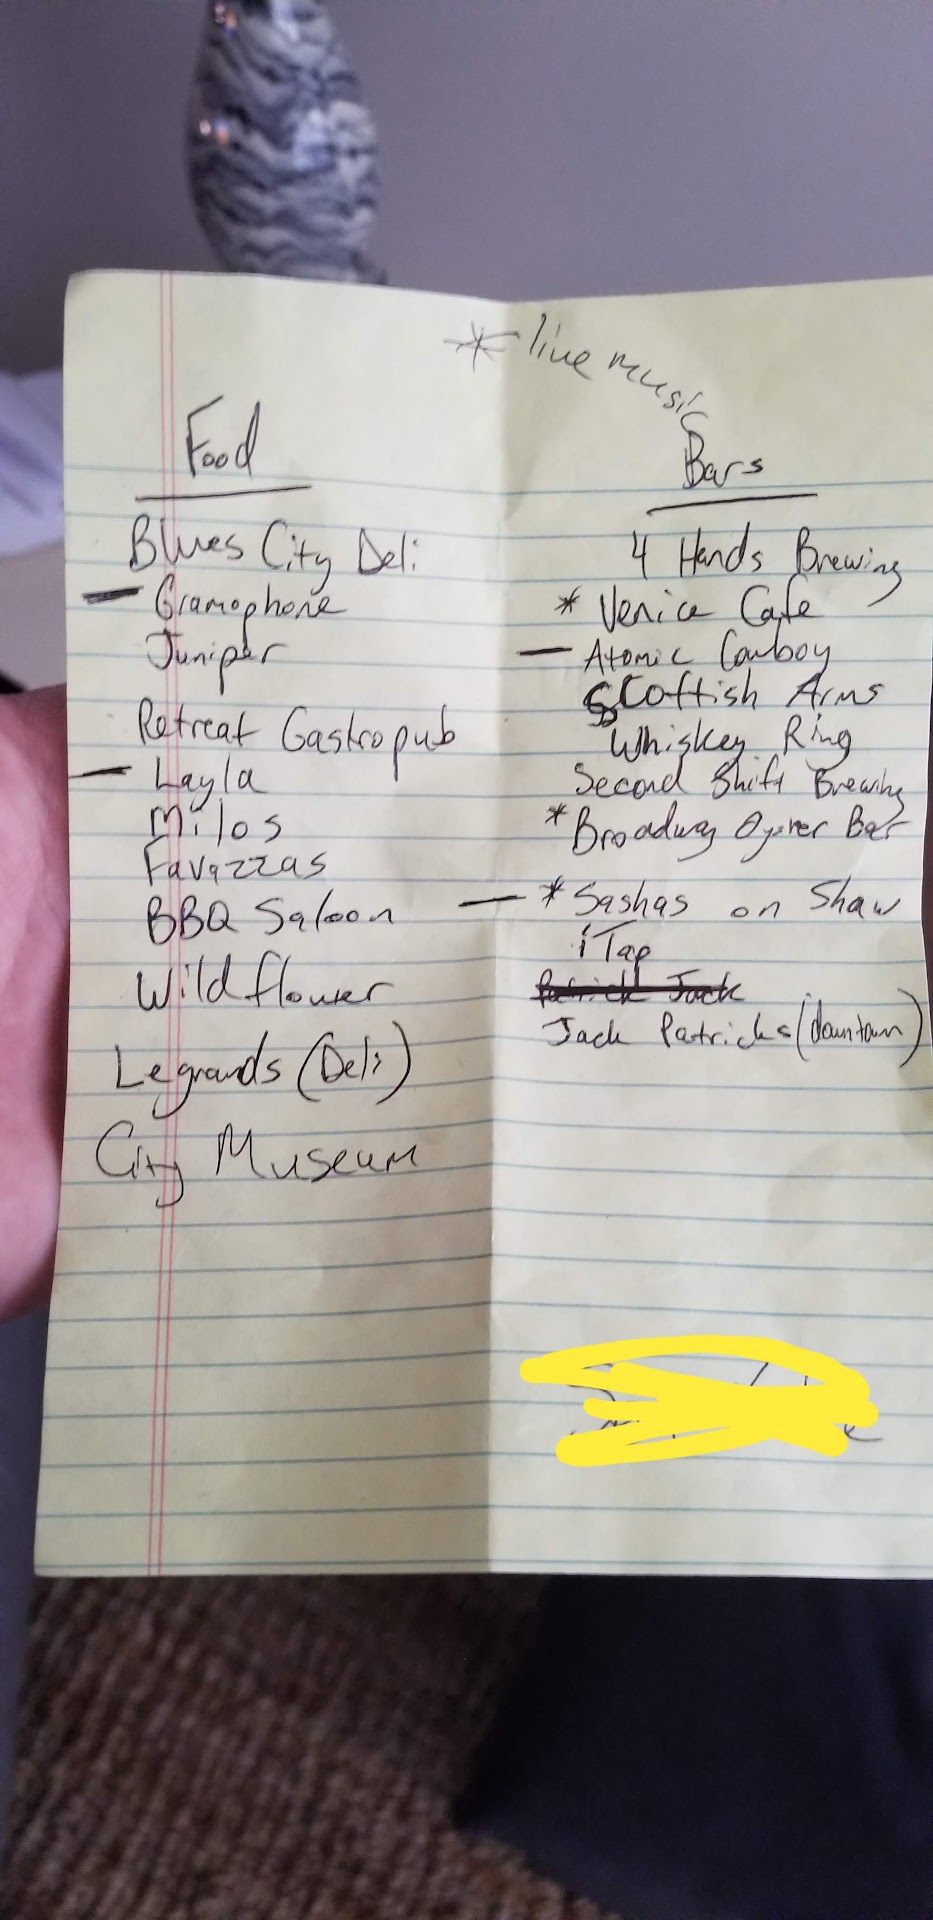 * live music
Food
Blues City Deli
— Gramophone
Juniper
Retreat Gastropub
— Layla
Milos
Favazzas
BBQ Saloon
Wildflower
Legrands (Deli)
City Museum
Bars
4 Hands Brewing
* Venice Cafe
— Atomic Cowboy
Scottish Arms
Whiskey Ring
Second Shift Brewing
* Broadway Oyster Bar
— * Sashas on Shaw
iTap
Patrick Jack
Jack Patricks (downtown)